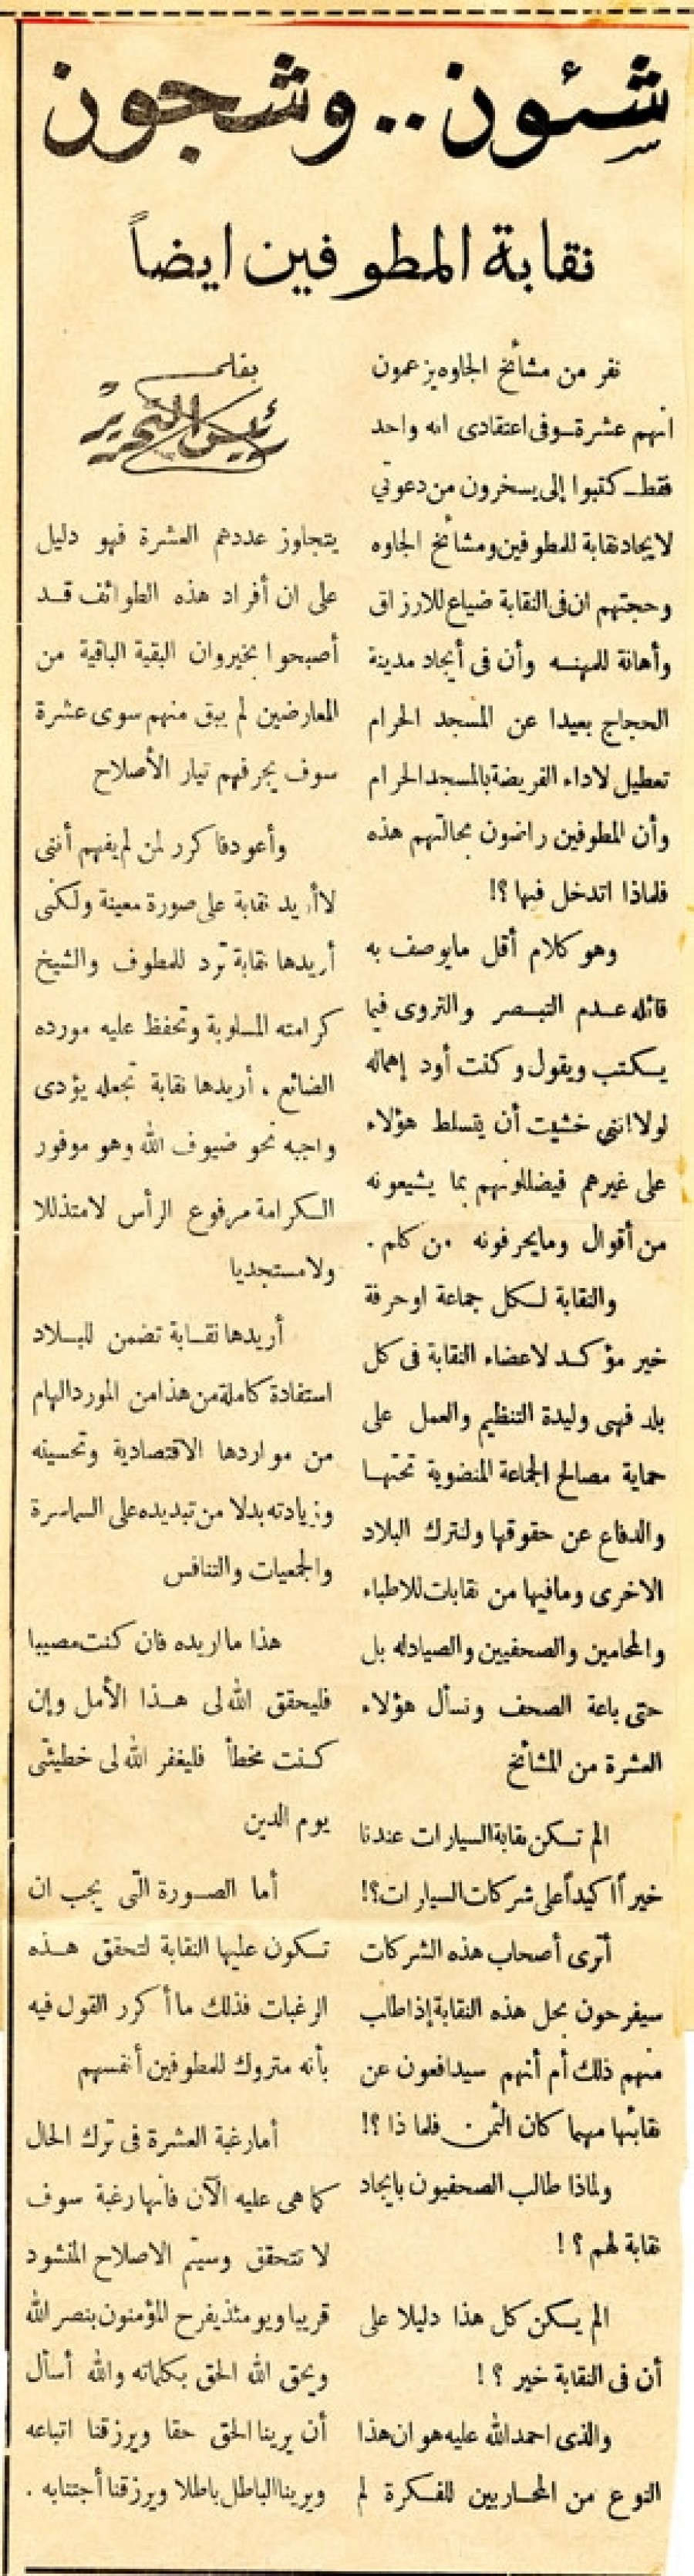 شئون.. وشجون
نقابة المطوفين ايضاً
نفر من مشائخ الجاوه يزعمون
انهم عشرة ــ وفى اعتقادى انه واحد
فقط ــ كتبوا إلى يسخرون من دعوتي
لايجاد نقابة للمطوفين ومشائخ الجاوه
وحجتهم ان فى النقابة ضياع للارزاق
وأهانة للمهنه وأن فى أيجاد مدينة
الحجاج بعيدا عن المسجد الحرام
تعطيل لاداء الفريضة بالمسجد الحرام
وأن المطوفين راضون بحالتهم هذه
فلماذا اتدخل فيها ؟!
وهو كلام أقل مايوصف به
قائله عدم التبصر والتروى فيما
يكتب ويقول وكنت أود إهماله
لولا اننى خشيت أن يتسلط هؤلاء
على غيرهم فيضللونهم بما يشيعونه
من أقوال ومايحرفونه من كلم .
والنقابة لكل جماعة اوحرفة
خير مؤكد لاعضاء النقابة فى كل
بلد فهى وليدة التنظيم والعمل على
حماية مصالح الجماعة المنضوية تحتها
والدفاع عن حقوقها ولنترك البلاد
الاخرى ومافيها من نقابات للاطباء
والمحامين والصحفيين والصيادله بل
حتى باعة الصحف ونسأل هؤلاء
العشرة من المشائخ
الم تكن نقابة السيارات عندنا
خيراً اكيداً على شركات السيارات ؟!
أترى أصحاب هذه الشركات
سيفرحون بحل هذه النقابة إذا طلب
منهم ذلك أم أنهم سيدافعون عن
نقابتها مهما كان الثمن فلماذا ؟!
ولماذا طالب الصحفيون بايجاد
نقابة لهم ؟ !
الم يكن كل هذا دليلا على
أن فى النقابة خير ؟ !
والذى احمد الله عليه هو ان هذا
النوع من المحاربين للفكرة لم
بقلم
رئيس التحرير
يتجاوز عددهم العشرة فهو دليل
على ان أفراد هذه الطوائف قد
أصبحوا بخير وان البقية الباقية من
المعارضين لم يبق منهم سوى عشرة
سوف يجرفهم تيار الأصلاح
وأعود فاكرر لمن لم يفهم أننى
لا أريد نقابة على صورة معينة ولكنى
أريدها نقابة ترد للمطوف والشيخ
كرامته المسلوبة وتحفظ عليه مورده
الضائع . أريدها نقابة تجعله يؤدى
واجبه نحو ضيوف الله وهو موفور
الكرامة مرفوع الرأس لا متذللا
ولا مستجديا
أريدها نقابة تضمن للبلاد
استفادة كاملة من هذا من المورد الهام
من مواردها الاقتصادية وتحسينه
وزيادته بدلا من تبديده على السماسرة
والجمعيات والتنافس
هذا ما اريده فان كنت مصيبا
فليحقق الله لى هذا الأمل وإن
كنت مخطأ فليغفر الله لى خطيئتى
يوم الدين
أما الصورة التى يجب ان
تكون عليها النقابة لتحقق هذه
الرغبات فذلك ما أكرر القول فيه
بأنه متروك للمطوفين أنفسهم
أما رغبة العشرة فى ترك الحال
كما هى عليه الآن فانها رغبة سوف
لا تتحقق وسيتم الاصلاح المنشود
قريبا ويومئذ يفرح المؤمنون بنصر الله
ويحق الله الحق بكلماته والله أسأل
أن يرينا الحق حقا ويرزقنا اتباعه
ويرينا الباطل باطلا ويرزقنا أجتنابه .